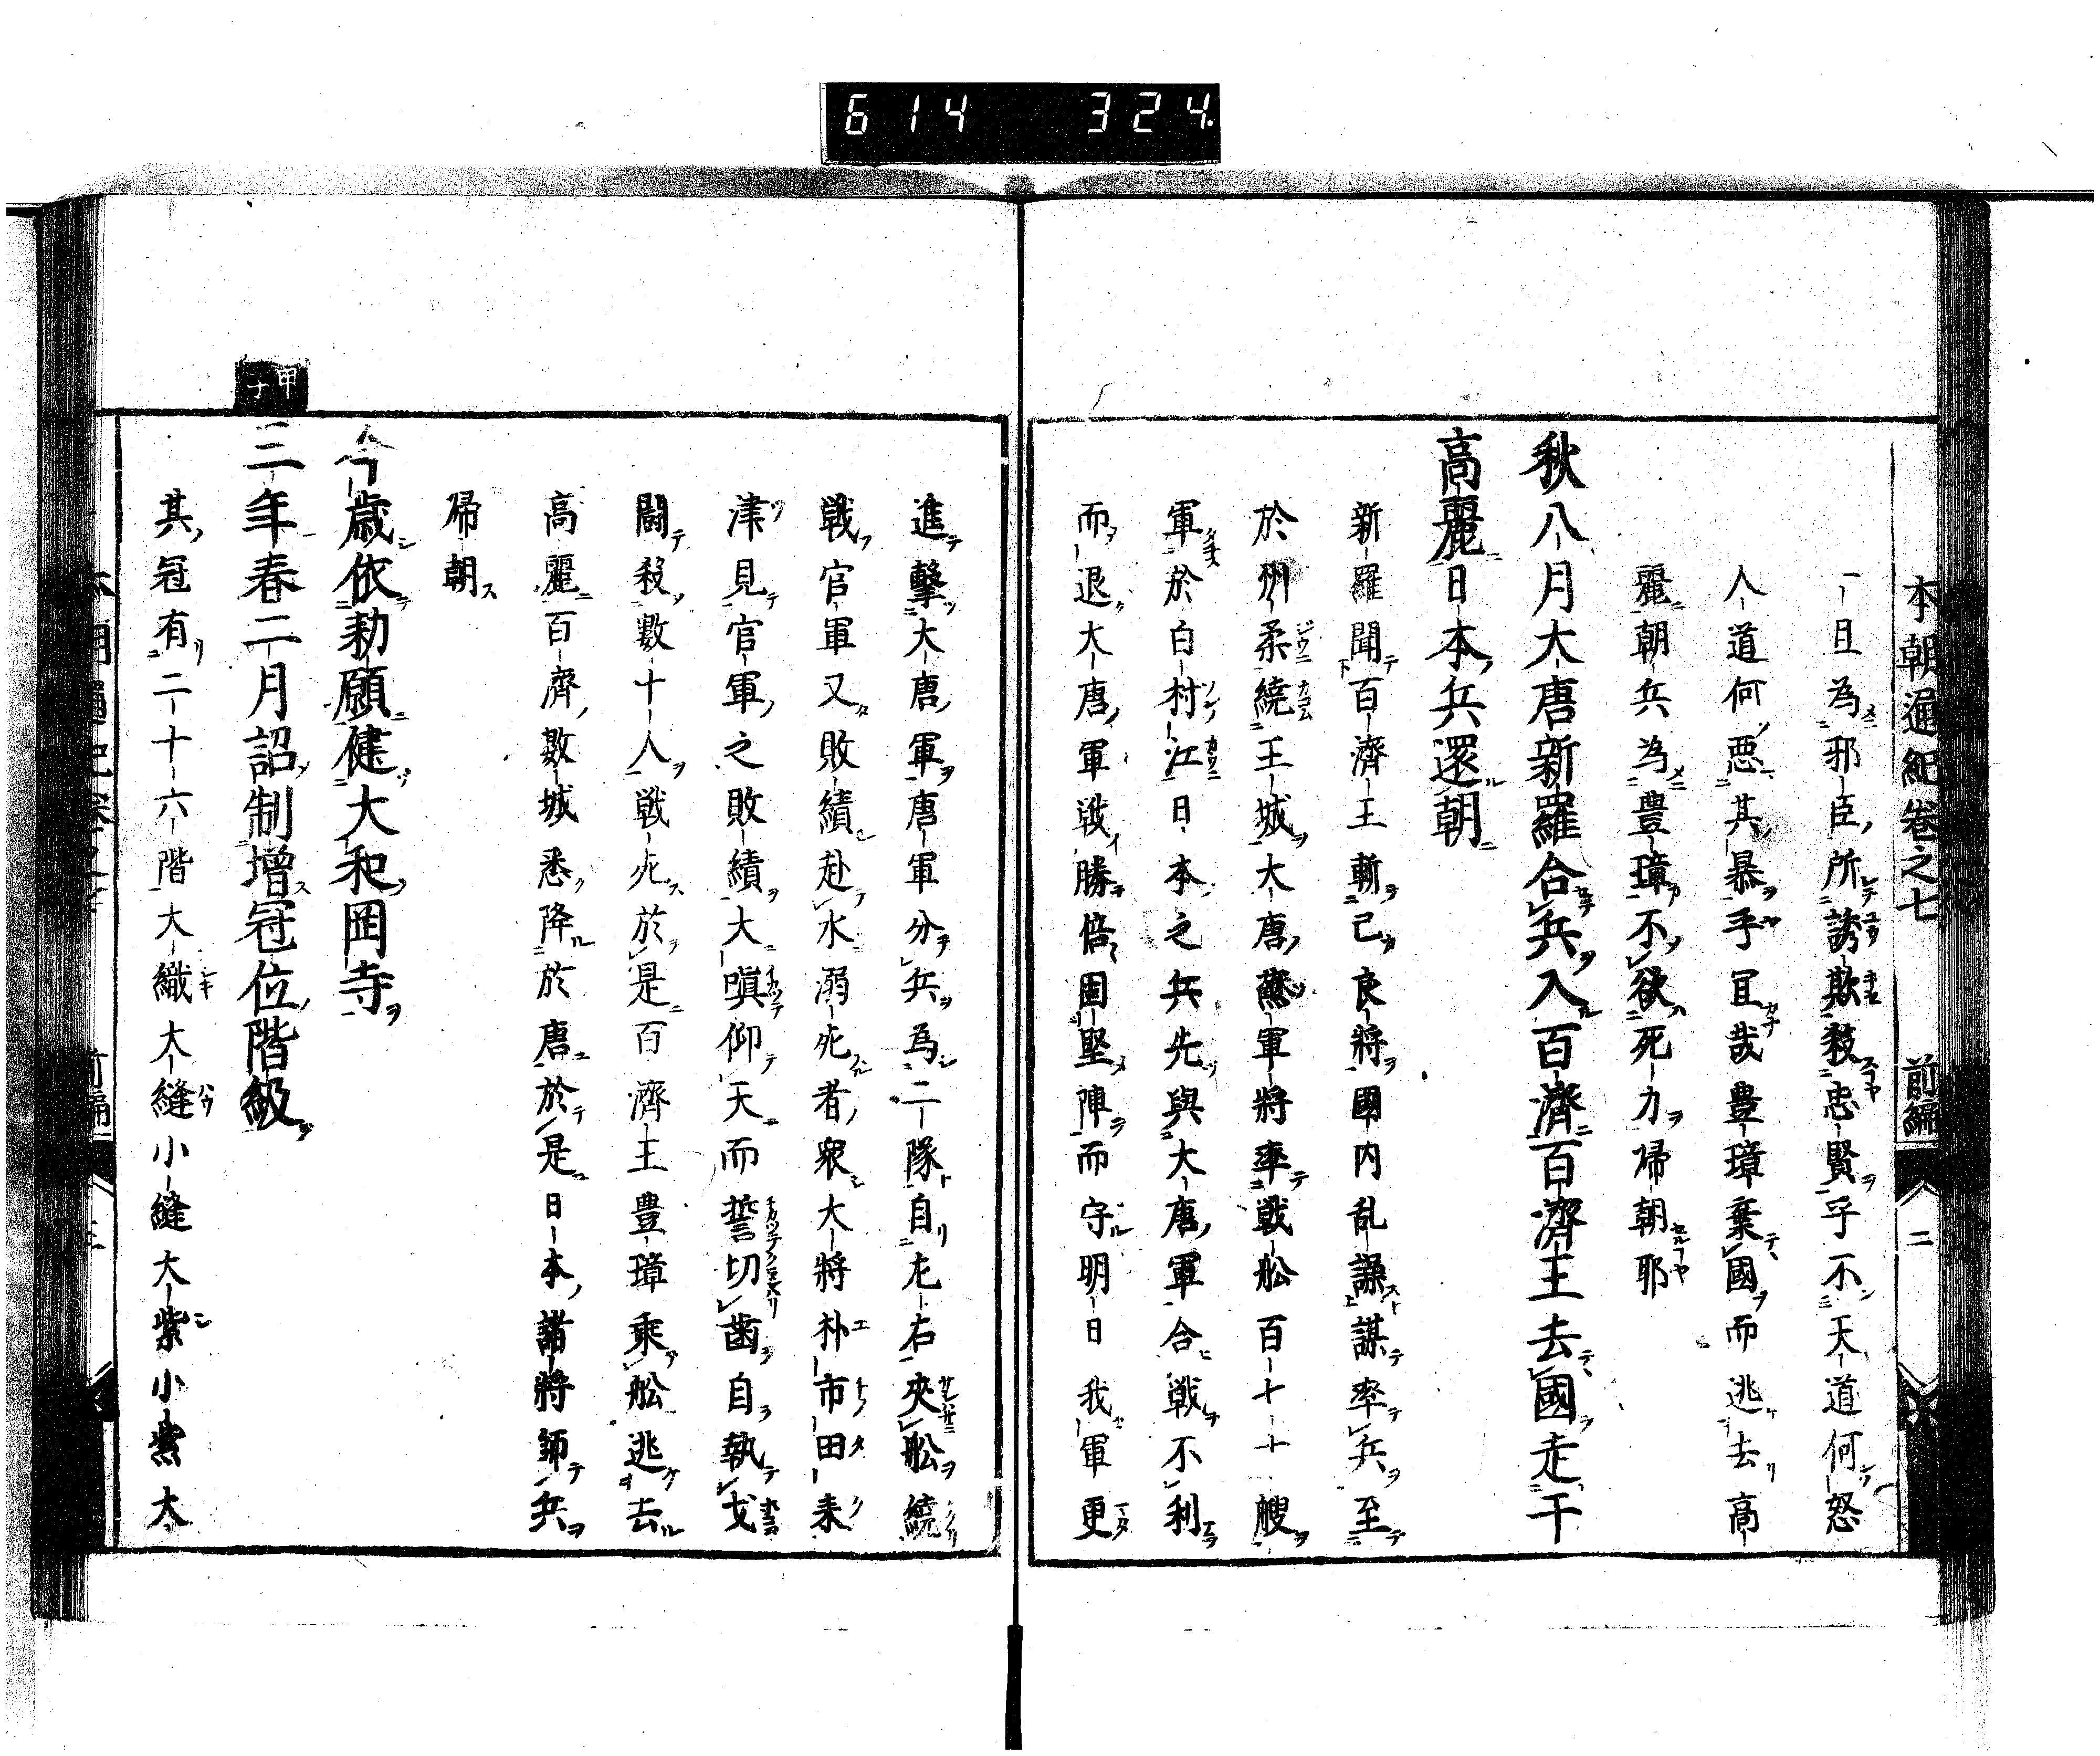 614 324
本朝通紀卷之七 前編 二
一旦為邪臣所誘欺殺忠賢乎不天道何怒
人道何惡其暴手且哉豊璋棄國而逃去高
麗朝兵為豊璋不欲死力帰朝耶
秋八月大唐新羅合兵入百濟百濟王去國走于
高麗日本兵還朝
新羅聞百濟王斬己良將國内乱謙謀率兵至
於州柔繞王城大唐軍將率戦舩百七十艘
軍於白村江日本之兵先與大唐軍合戦不利
而退大唐軍戦勝倍固堅陣而守明日我軍更
進擊大唐軍唐軍分兵為二隊自左右夾舩繞
戦官軍又敗績赴水溺死者衆大将朴市田来
津見官軍之敗績大嗔仰天而誓切歯自執戈
闘殺數十人戦死於是百濟王豊璋乘舩逃去
高麗百濟數城悉降於唐於是日本諸將師兵
帰朝
今歳依勅願健大和岡寺
甲子
三年春二月詔制增冠位階級
其冠有二十六階大織大縫小縫大紫小紫大